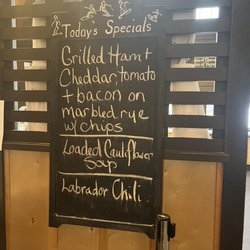 Today's Specials
Grilled Ham +
Cheddar, tomato
+ bacon on
marbled rye
w/ chips
Loaded Cauliflower
Soup
Labrador Chili